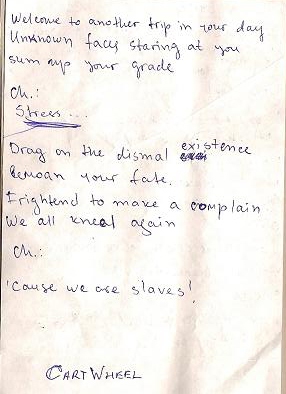 Welcome to another trip in your day
Unknown faces staring at you
sum up your grade
Ch.:
Stress...
Drag on the dismal existence
Bemoan your fate.
Frightend to make a complain
We all kneel again
Ch.:
'Cause we are slaves!
CARTWHEEL